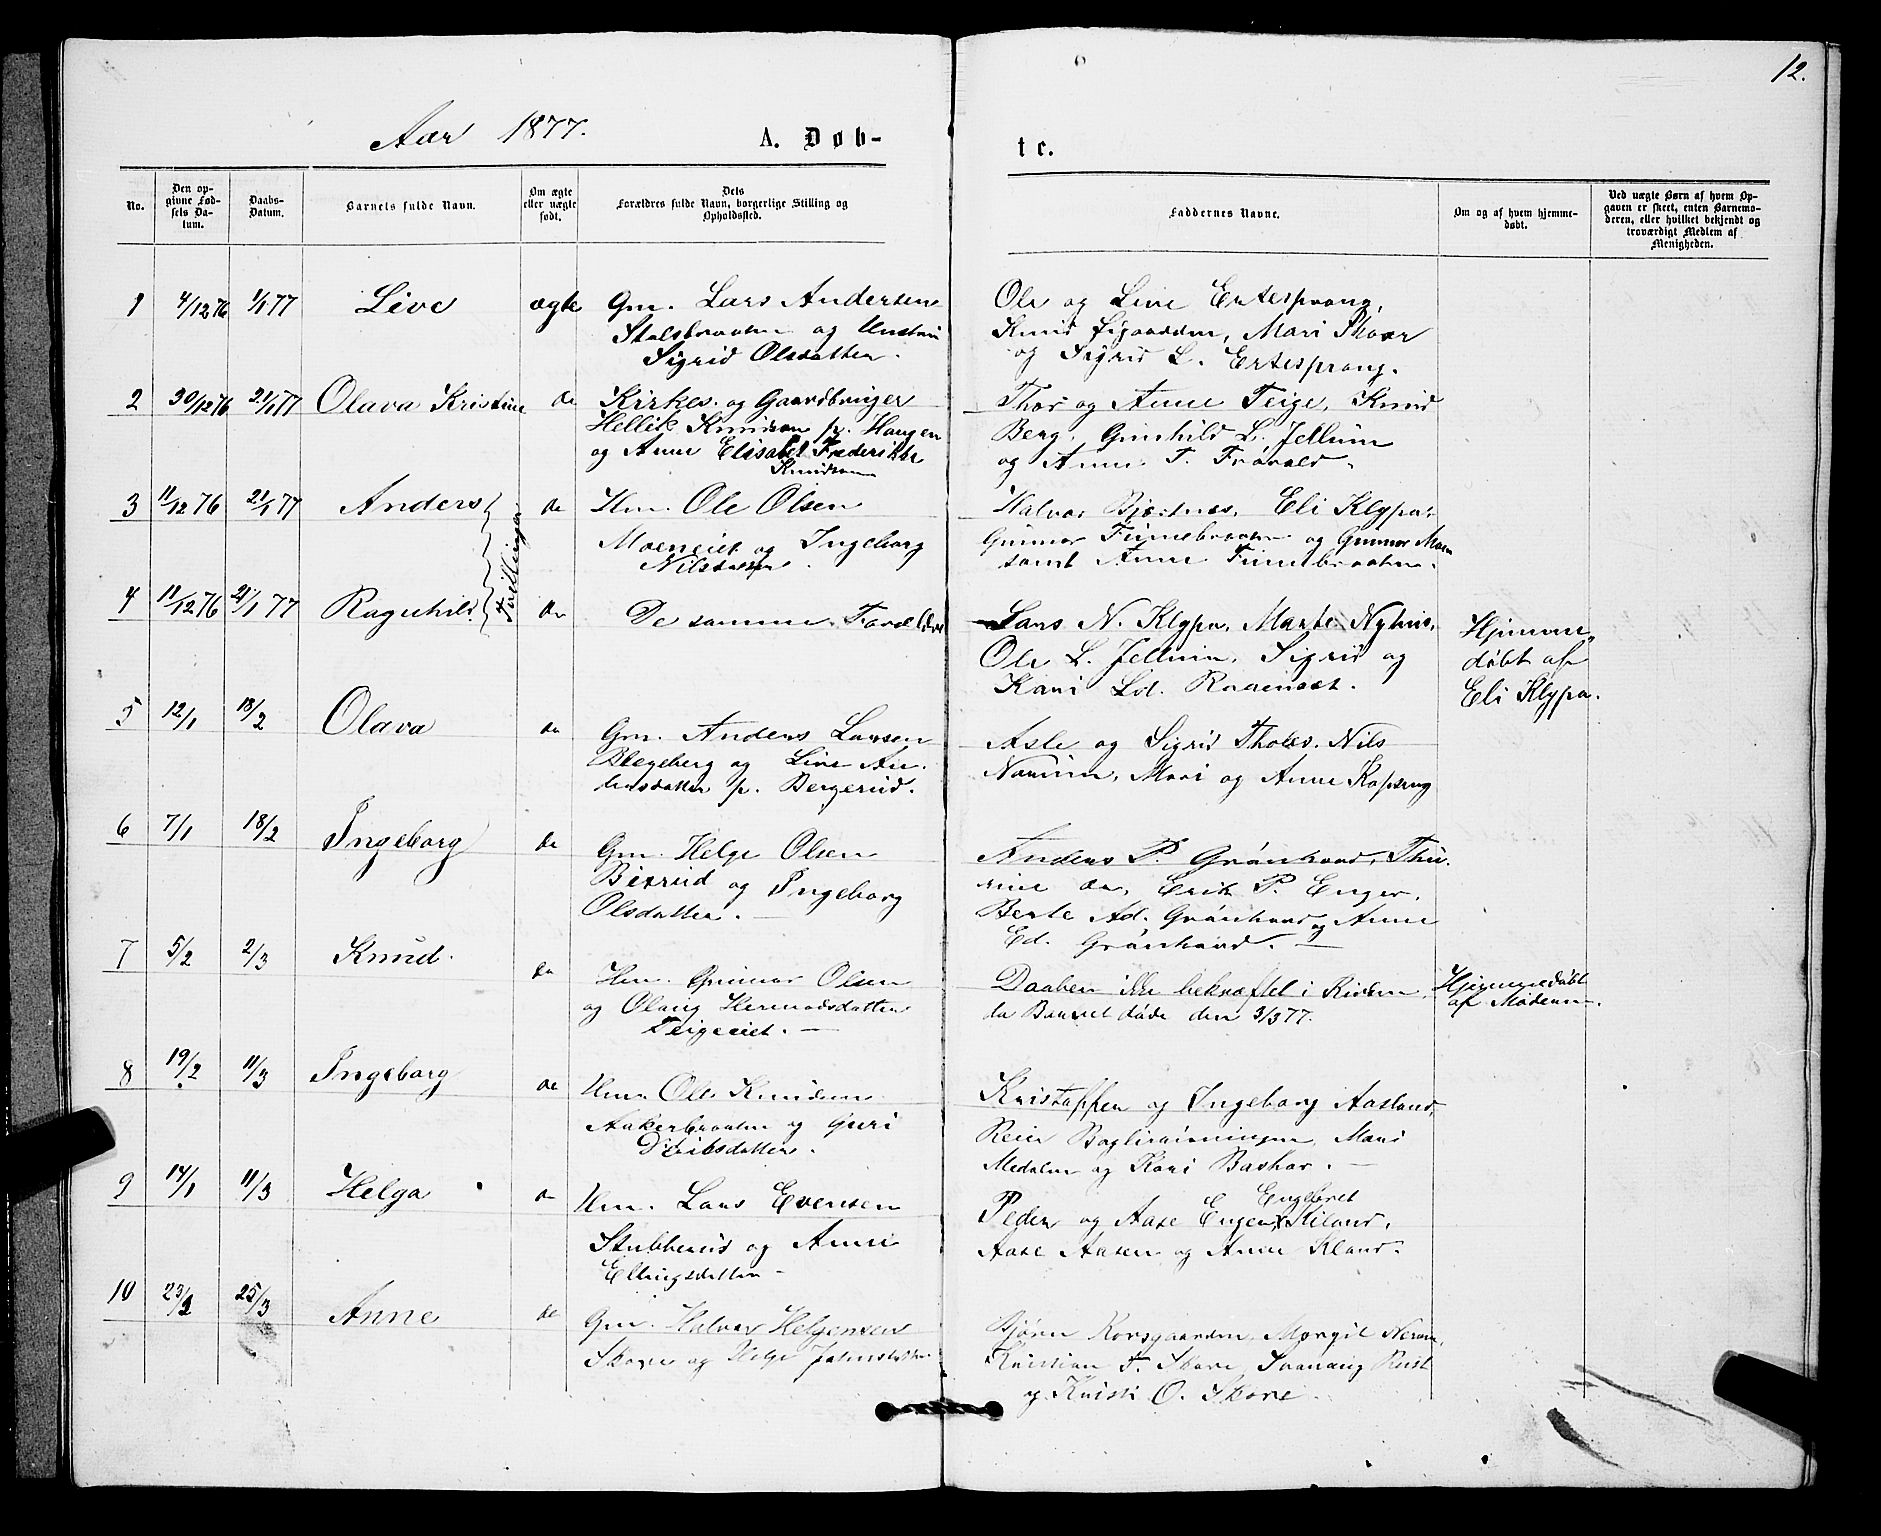 12.
Aar 1877.
A. Døb-
te.
No.
Den op-
givne Fød-
sels Da-
tum.
Daabs-
Datum.
Barnets fulde Navn.
Om ægte
eller uægte
født.
Dets
Forældres fulde Navn, borgerlige Stilling og
Opholdssted.
Faddernes Navne.
Om og af hvem hjemme-
døbt.
Ved uægte Børn af hvem Op-
gaven er skeet, enten Barnemo-
deren, eller hvilket bekjendt og
troværdigt Medlem af
Menigheden.
1 4/12 76 1/1 77 Live ægte Gm. Lars Andersen
Stalsbraaten og Hustru
Sigrid Olsdatter.
Ole og Live Ertesprang,
Knud Sigaarden, Mari Skoar
og Sigrid L. Ertesprang.
2 30/12 76 21/1 77 Olava Kristine do Kirkes. og Gaardbruger
Hellik Knudsen p. Haugen
og Anne Elisabet Frederikke
Knudsen
Thor og Anne Teige, Knud
Berg, Gunhild L. Jellum
og Anne T. Frövold.
3 11/12 76 21/1 77 Anders do Hm. Ole Olsen
Moeneiet og Ingeborg
Nilsdatter.
Tvillinger
Halvor Bjertnes, Eli Klypa,
Gunnar Finnebraaten og Gunnor Moen
samt Anne Finnebraaten.
4 11/12 76 21/1 77 Ragnhild. do De samme Forældre
Lars N. Klypa, Marte Nyhus,
Ole L. Jellum, Sigrid og
Kari Ld. Raaenset.
Hjemme-
døbt af
Eli Klypa.
5 12/1 18/2 Olava do Gm. Anders Larsen
Blegeberg og Live An-
dersdatter p. Bergerud.
Asle og Sigrid Tholes, Nils
Narum, Mari og Anne Kopseng
6 7/1 18/2 Ingeborg do Gm. Helge Olsen
Bixrud og Ingeborg
Olsdatter.
Anders P. Grönhovd, Thu-
rine do, Erik P. Enger,
Berte Ad. Grönhovd og Anne
Ed. Grönhovd.
7 5/2 2/3 Knud. do Hm. Gunnar Olsen
og Olaug Hermodsdatter
Teigeeiet.
Daaben ikke bekræftet i Kirken,
da Barnet døde den 3/3 77.
Hjemmedøbt
af Moderen.
8 19/2 11/3 Ingeborg do Hm. Ole Knudsen
Aakerbraaten og Guri
Didriksdatter.
Kristoffer og Ingeborg Aasland,
Reier Mari
Medalen og Kari Baskar.
9 14/1 11/3 Helga do Hm. Lars Evensen
Stubberud og Anne
Ellingsdatter
Peder og Aase Enger, Engebret Kiland,
Aase Aasen og Anne Kland.
10 23/2 25/3 Anne do Gm. Halvor Helgensen
Skore og Helge Johnsdatter
Björn Korsgaarden, Margit Neraa,
Kristian T. Skore, Svanaug Rust
og Kristi O. Skore.